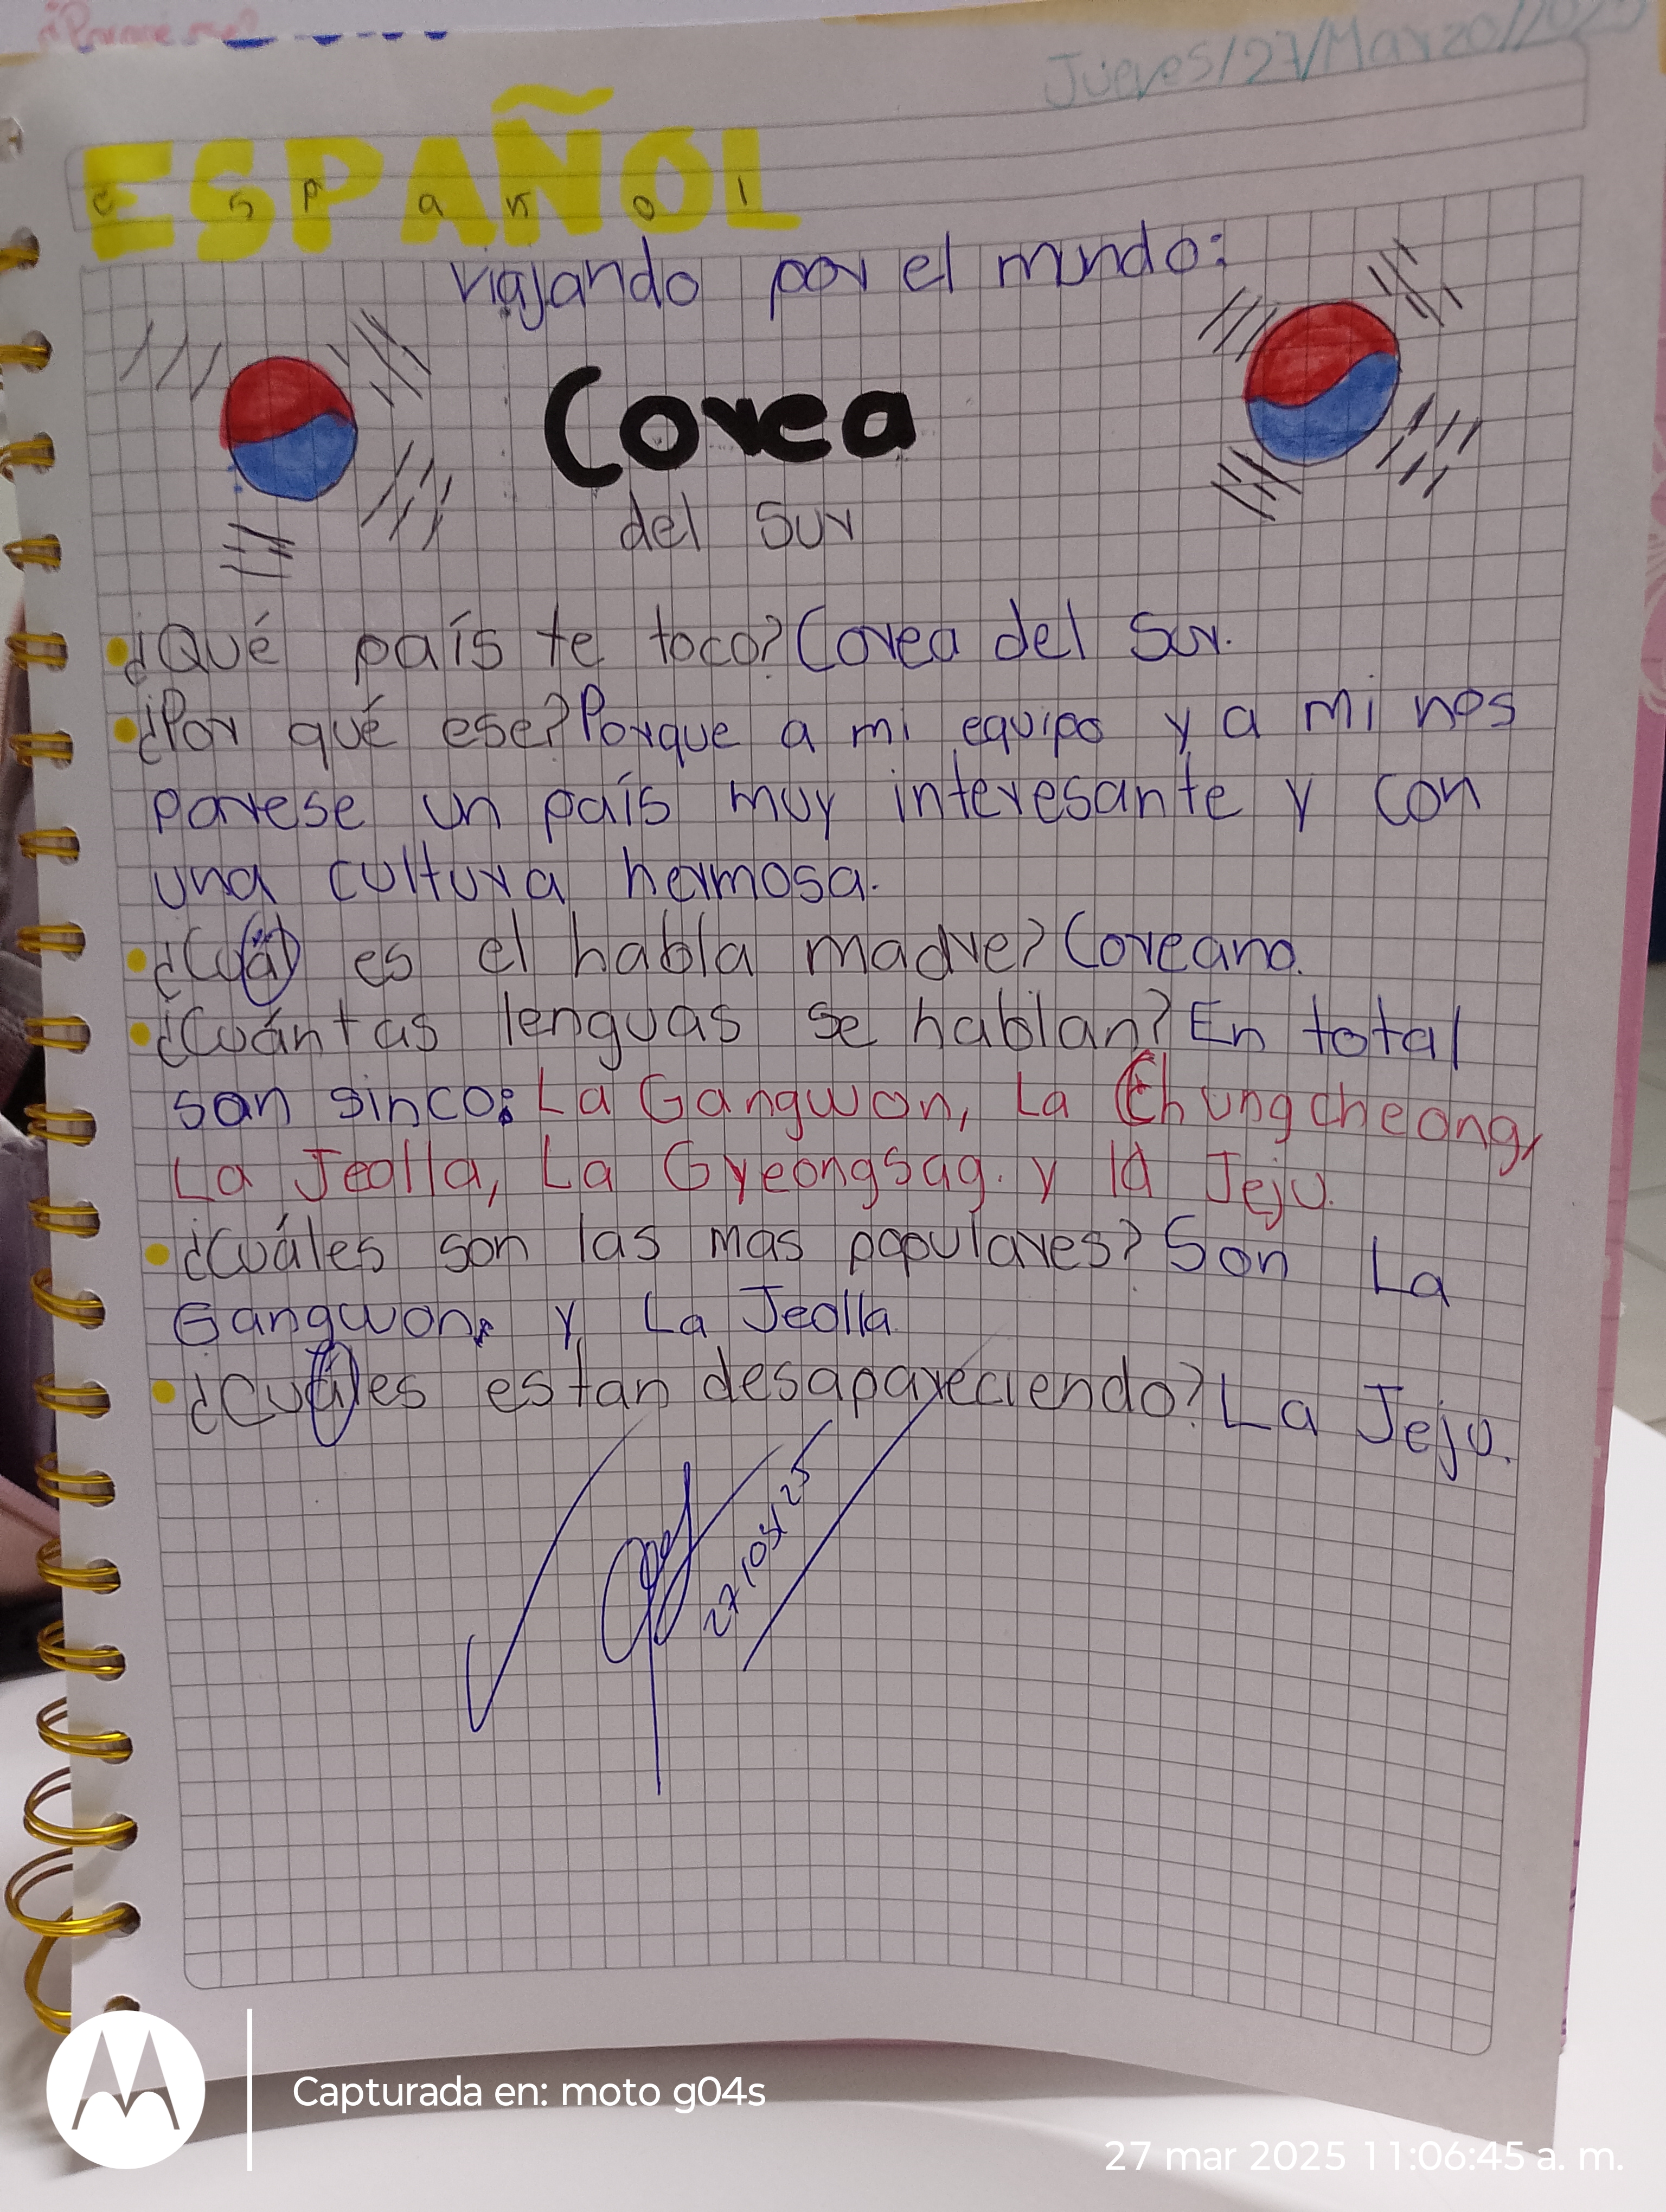 Jueves/27/Marzo/2025
ESPAÑOL
e s p a ñ o l
viajando por el mundo:
Corea
del Sur
¿Qué país te toco? Corea del Sur.
¿Por qué ese? Porque a mi equipo y a mi nos
parese un país muy interesante y con
una cultura hermosa.
¿Cuál es el habla madre? Coreano.
¿Cuántas lenguas se hablan? En total
son sinco: La Gangwon, La Chungcheong,
La Jeolla, La Gyeongsag. y la Jeju.
¿Cuáles son las mas populares? Son La
Gangwon, y La Jeolla.
¿Cuáles estan desapareciendo? La Jeju.
27/03/25
Capturada en: moto g04s
27 mar 2025 11:06:45 a. m.